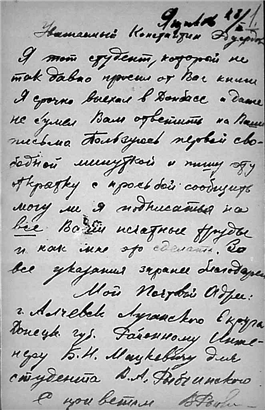 Уважаемый Константин Эдуардович
Я тот студент, которой не
так давно просил от Вас книги
Я срочно выехал в Донбасс и даже
не сумел Вам ответить на Ваши
письма Пользуюсь первой сво-
бодной минуткой и пишу эту
с просьбой сообщить
могу ли я подписаться на
все Ваши печатные труды
и как мне это сделать. За
все указания заранее благодарен
Мой Почтовой Адрес:
г. Алчевск Луганского Округа
Донецк. губ. Районному Инже-
неру Б.Н. Мацкевичу для
студента В.А.
С приветом